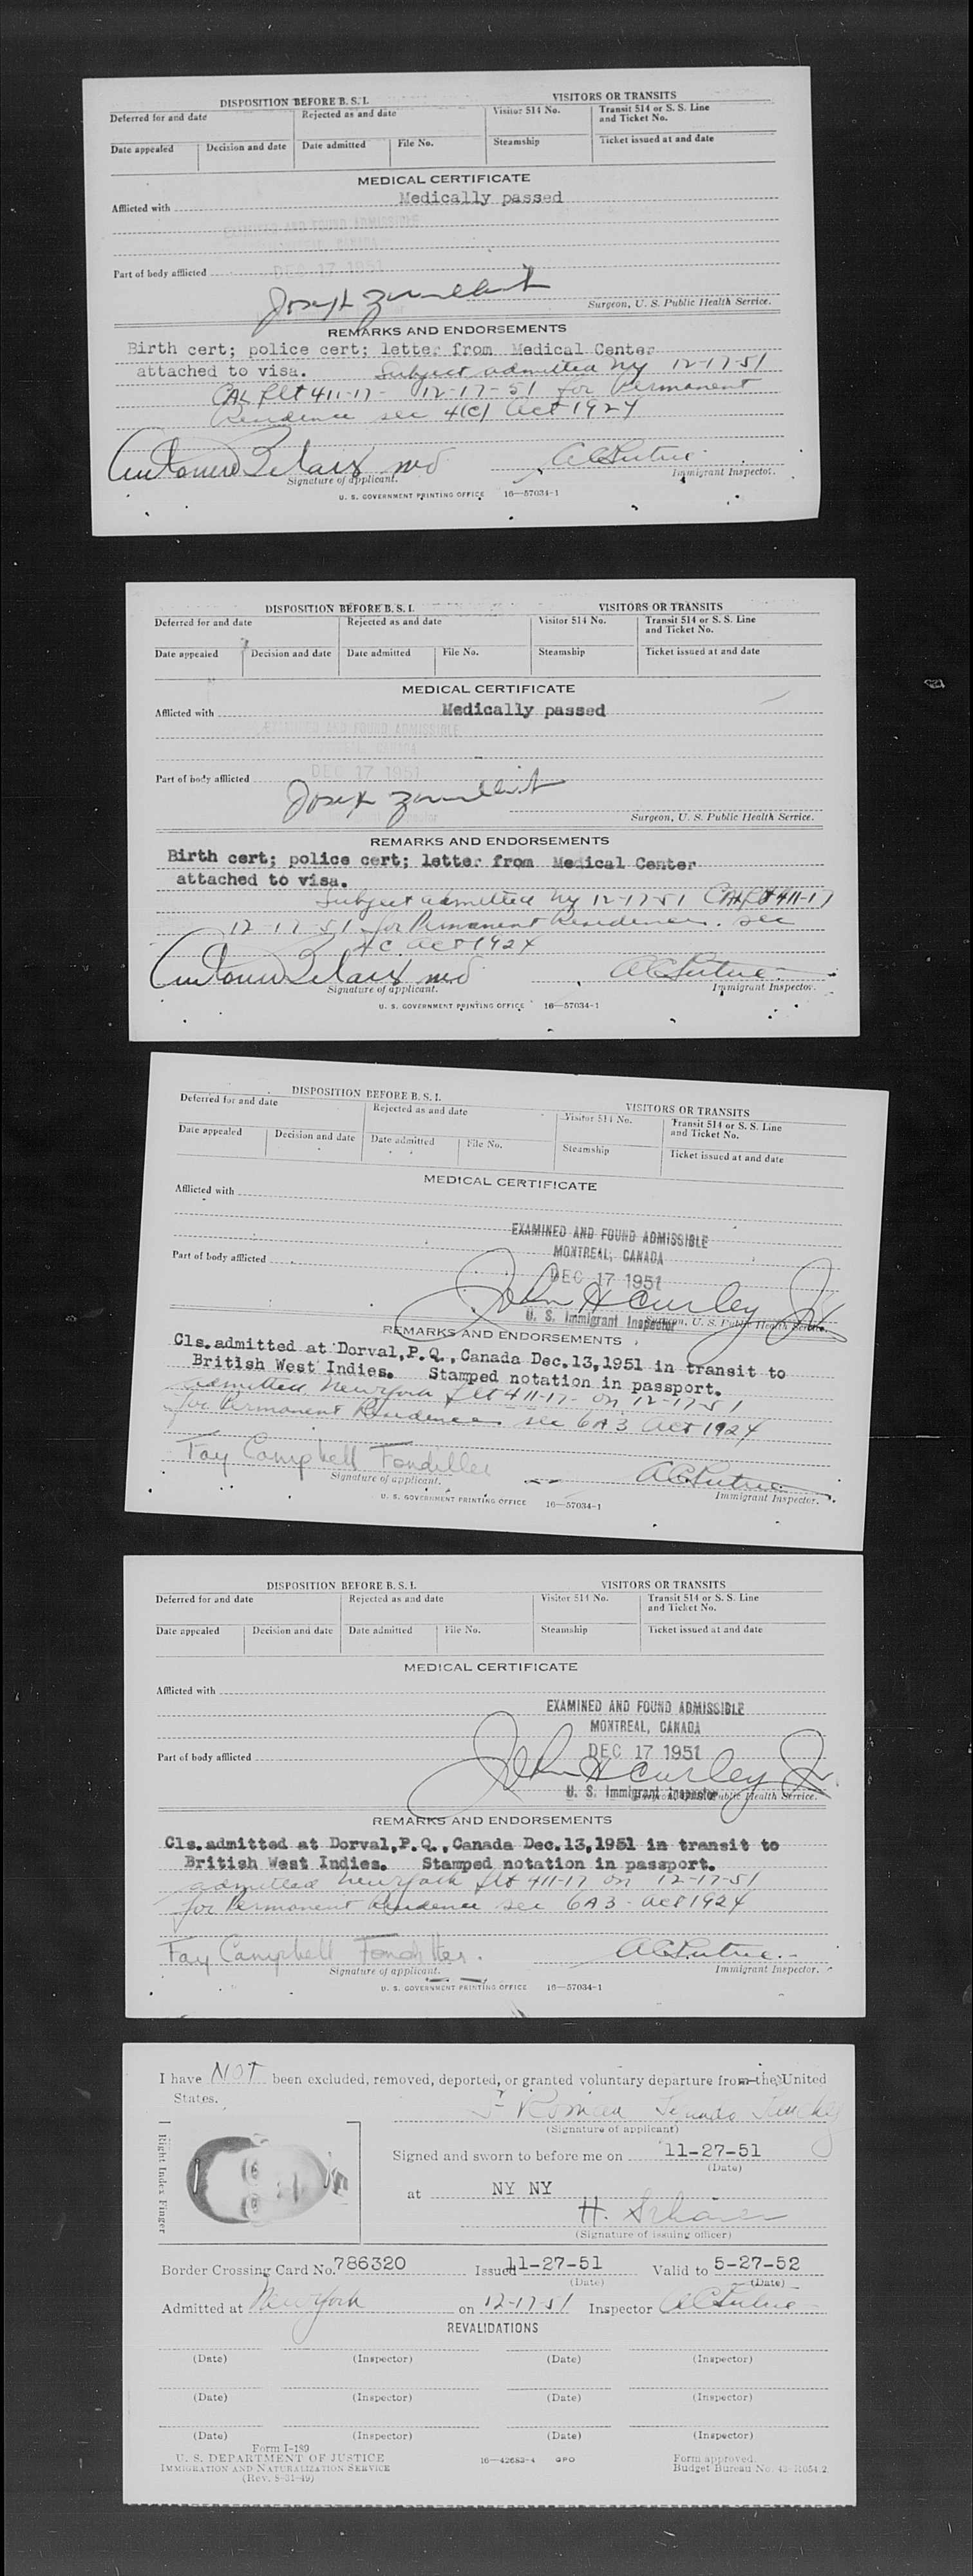 DISPOSITION BEFORE B. S. I.
VISITORS OR TRANSITS
Deferred for and date
Rejected as and date
Visitor 514 No.
Transit 514 or S. S. Line
and Ticket No.
Date appealed
Decision and date
Date admitted
File No.
Steamship
Ticket issued at and date
MEDICAL CERTIFICATE
Medically passed
Afflicted with
EXAMINED AND FOUND ADMISSIBLE
MONTREAL, CANADA
Part of body afflicted
DEC 17 1951
Joseph
Surgeon, U. S. Public Health Service.
REMARKS AND ENDORSEMENTS
Birth cert; police cert; letter from Medical Center
attached to visa. Subject admitted NY 12-17-51
CAL flt 411-17- 12-17-51 for Permanent
Residence sec 4(C) Act 1924
Signature of applicant.
Immigrant Inspector.
U. S. GOVERNMENT PRINTING OFFICE 16—57034-1
DISPOSITION BEFORE B. S. I.
VISITORS OR TRANSITS
Deferred for and date
Rejected as and date
Visitor 514 No.
Transit 514 or S. S. Line
and Ticket No.
Date appealed
Decision and date
Date admitted
File No.
Steamship
Ticket issued at and date
MEDICAL CERTIFICATE
Afflicted with
Medically passed
EXAMINED AND FOUND ADMISSIBLE
CANADA
DEC 17 1951
Part of body afflicted
Joseph
Surgeon, U. S. Public Health Service.
REMARKS AND ENDORSEMENTS
Birth cert; police cert; letter from Medical Center
attached to visa.
Subject admitted NY 12-17-51 CAL flt 411-17
12-17-51 for Permanent Residence. sec
4C Act 1924
Signature of applicant.
Immigrant Inspector.
U. S. GOVERNMENT PRINTING OFFICE 16—57034-1
DISPOSITION BEFORE B. S. I.
VISITORS OR TRANSITS
Deferred for and date
Rejected as and date
Visitor 514 No.
Transit 514 or S. S. Line
and Ticket No.
Date appealed
Decision and date
Date admitted
File No.
Steamship
Ticket issued at and date
MEDICAL CERTIFICATE
Afflicted with
EXAMINED AND FOUND ADMISSIBLE
MONTREAL, CANADA
Part of body afflicted
DEC 17 1951
John H Curley Jr.
U. S. Immigrant Inspector
Surgeon, U. S. Public Health Service.
REMARKS AND ENDORSEMENTS
Cls.admitted at Dorval,P.Q.,Canada Dec.13,1951 in transit to
British West Indies. Stamped notation in passport.
admitted New York flt 411-17- on 12-17-51
for Permanent Residence sec 6A3 Act 1924
Fay Campbell Fondiller
Signature of applicant.
Immigrant Inspector.
U. S. GOVERNMENT PRINTING OFFICE 16—57034-1
DISPOSITION BEFORE B. S. I.
VISITORS OR TRANSITS
Deferred for and date
Rejected as and date
Visitor 514 No.
Transit 514 or S. S. Line
and Ticket No.
Date appealed
Decision and date
Date admitted
File No.
Steamship
Ticket issued at and date
MEDICAL CERTIFICATE
Afflicted with
EXAMINED AND FOUND ADMISSIBLE
MONTREAL, CANADA
Part of body afflicted
DEC 17 1951
John H Curley Jr.
U. S. Immigrant Inspector
Public Health Service.
REMARKS AND ENDORSEMENTS
Cls.admitted at Dorval,P.Q.,Canada Dec.13,1951 in transit to
British West Indies. Stamped notation in passport.
admitted New York flt 411-17 on 12-17-51
for Permanent Residence sec 6A3 - Act 1924
Fay Campbell Fondiller.
Signature of applicant.
Immigrant Inspector.
U. S. GOVERNMENT PRINTING OFFICE 16—57034-1
I have NOT been excluded, removed, deported, or granted voluntary departure from the United
States.
(Signature of applicant)
Right Index Finger
Signed and sworn to before me on 11-27-51
(Date)
at NY NY
H.
(Signature of issuing officer)
Border Crossing Card No. 786320 Issued 11-27-51 Valid to 5-27-52
(Date) (Date)
Admitted at New York on 12-17-51 Inspector
REVALIDATIONS
(Date) (Inspector) (Date) (Inspector)
(Date) (Inspector) (Date) (Inspector)
(Date) (Inspector) (Date) (Inspector)
Form I-189
U. S. DEPARTMENT OF JUSTICE
IMMIGRATION AND NATURALIZATION SERVICE
(Rev. 8-31-49)
16—42682-4 GPO
Form approved.
Budget Bureau No. 43-R054.2